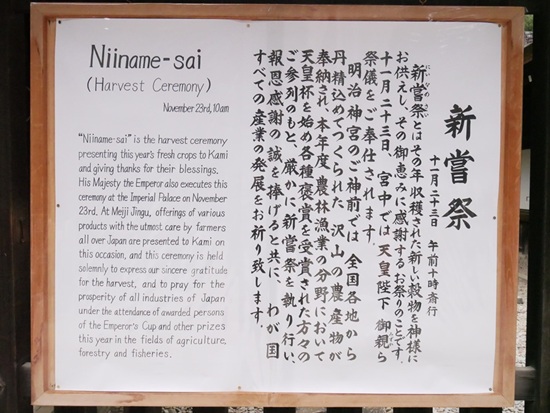 Niiname-sai
(Harvest Ceremony)
November 23rd, 10am
"Niiname-sai" is the harvest ceremony
presenting this year's fresh crops to Kami
and giving thanks for their blessings.
His Majesty the Emperor also executes this
ceremony at the Imperial Palace on November
23rd. At Meiji Jingu, offerings of various
products with the utmost care by farmers
all over Japan are presented to Kami on
this occasion, and this ceremony is held
solemnly to express our sincere gratitude
for the harvest, and to pray for the
prosperity of all industries of Japan
under the attendance of awarded persons
of the Emperor's Cup and other prizes
this year in the fields of agriculture,
forestry and fisheries.
新嘗祭
十一月二十三日 午前十時斎行
新嘗祭とはその年収穫された新しい穀物を神様に
お供えし、その御恵みに感謝するお祭りのことです。
十一月二十三日、宮中では天皇陛下御親ら
祭儀をご奉仕されます。
明治神宮のご神前では 全国各地から
丹精込めてつくられた 沢山の農産物が
奉納され、本年度、農林漁業の分野において
天皇杯を始め各種褒賞を受賞された方々の
ご参列のもと、厳かに新嘗祭を執り行い、
報恩感謝の誠を捧げると共に、わが国
すべての産業の発展をお祈り致します。